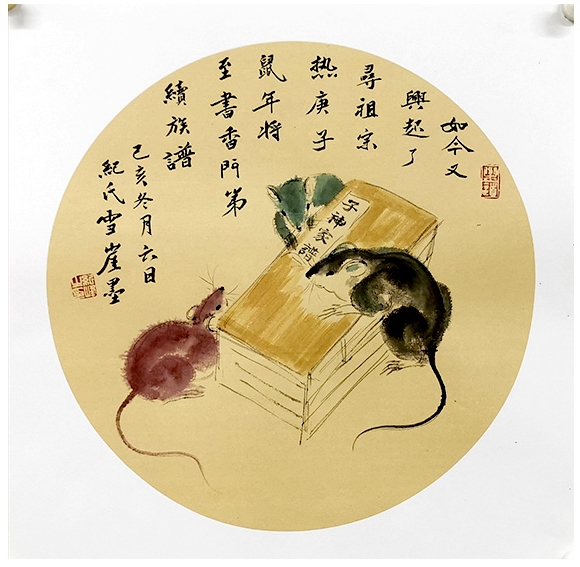 如今又
興起了
尋祖宗
热庚子
鼠年将
至書香門第
續族譜
己亥冬月六日
紀氏雪崖墨
子神家譜